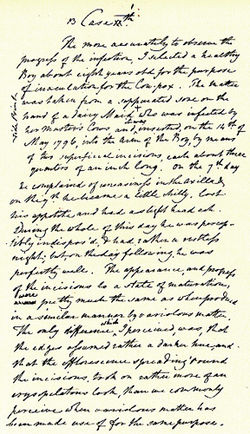 B Case
The more accurately to observe the
progress of the infection, I selected a healthy
Boy about eight years old for the purpose
of inoculation for the Cow pox. The matter
was taken from a suppurated sore on the
hand of a dairy Maid who was infected by
her Masters Cows and inserted, on the 14th of
May 1796, into the arm of the Boy, by means
of two superficial incisions, each about three
quarters of an inch long. On the 7th day
he complained of uneasiness in the axilla &
on the 9th he became a little chilly, lost
his appetite and had a slight head ach.
During the whole of this day he was percep-
tibly indispos'd, & had rather a restless
night; but, on the day following, he was
perfectly well. The appearance, and progress
of the incisions to a state of maturation,
were pretty much the same as when produced
in a similar manner by variolous matter.
The only difference which I perceived was, that
the edges assumed rather a darker hue, and
that the efflorescence spreading round
the incisions, took on rather more of an
erysipelatous look, than we commonly
perceive when variolous matter has
been made use of for the same purpose.